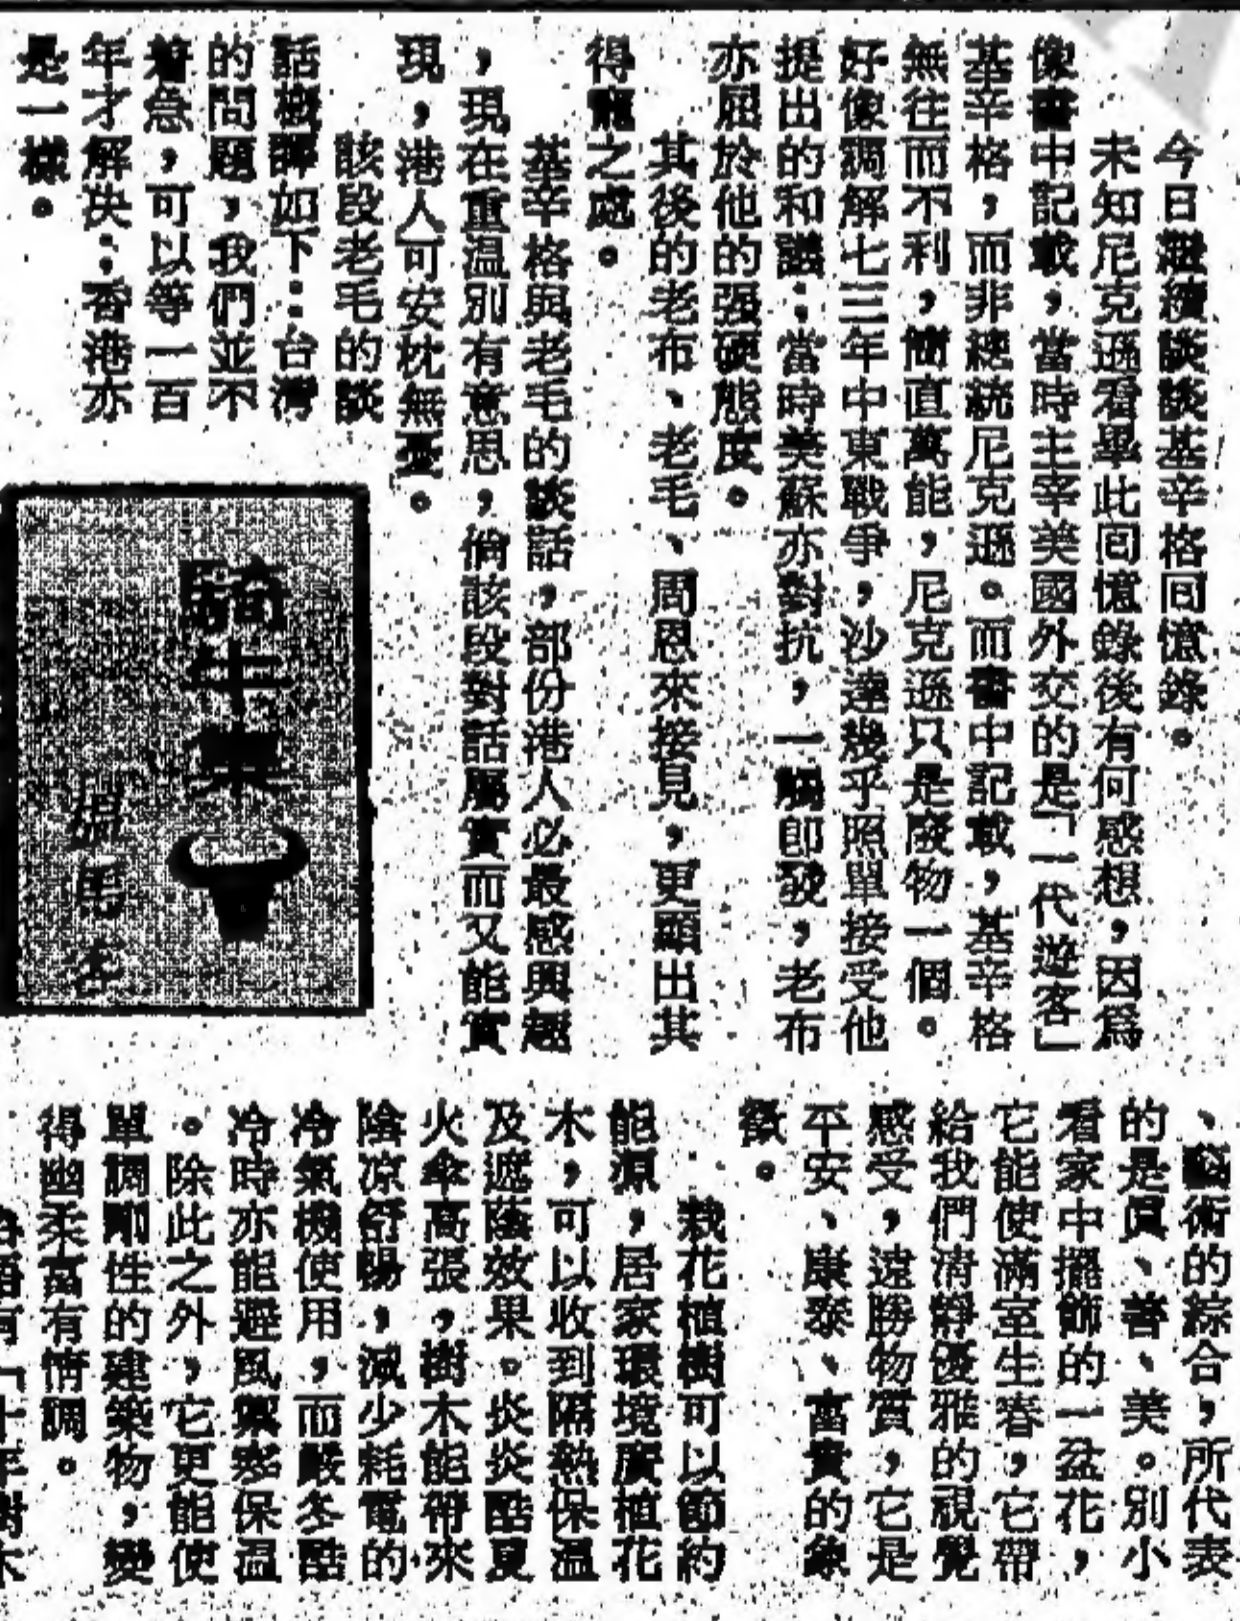 今日繼續談談基辛格囘憶錄。
未知尼克遜看畢此囘憶錄後有何感想，因爲
像書中記載，當時主宰美國外交的是「一代遊客」
基辛格，而非總統尼克遜。而書中記載，基辛格
無往而不利，簡直萬能，尼克遜只是廢物一個。
好像調解七三年中東戰爭，沙達幾乎照單接受他
提出的和議；當時美蘇亦對抗，一觸卽發，老布
亦屈於他的强硬態度。
其後的老布、老毛、周恩來接見，更顯出其
得寵之處。
基辛格與老毛的談話，部份港人必最感興趣
，現在重温別有意思，倘該段對話屬實而又能實
現，港人可安枕無憂。
該段老毛的談
話樹譯如下：台灣
的問題，我們並不
着急，可以等一百
年才解決；香港亦
是一樣。
騎牛集
、藝術的綜合，所代表
的是眞、善、美。別小
看家中擺飾的一盆花，
它能使滿室生春，它帶
給我們清靜優雅的視覺
感受，遠勝物質，它是
平安、康泰、富貴的象
徵。
栽花植樹可以節約
能源，居家環境廣植花
木，可以收到隔熱保温
及遮蔭效果。炎炎酷夏
火傘高張，樹木能帶來
陰凉舒暢，減少耗電的
冷氣機使用，而嚴冬酷
冷時亦能避風禦寒保温
。除此之外，它更能使
單調剛性的建築物，變
得幽柔富有情調。